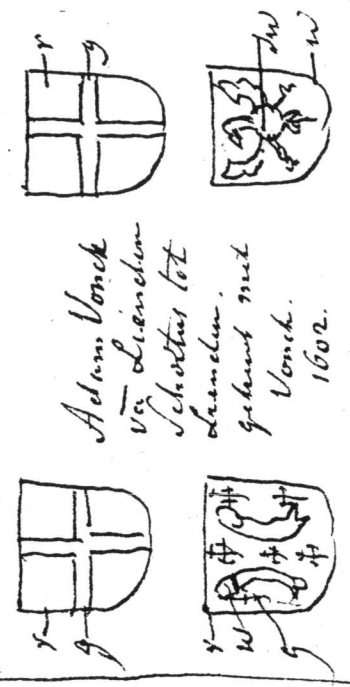 r g
zw w
Adam Vonck
va Lienden
Scholtus tot
Lienden.
gehuwt met
Vonck.
1602.
r g
r w g